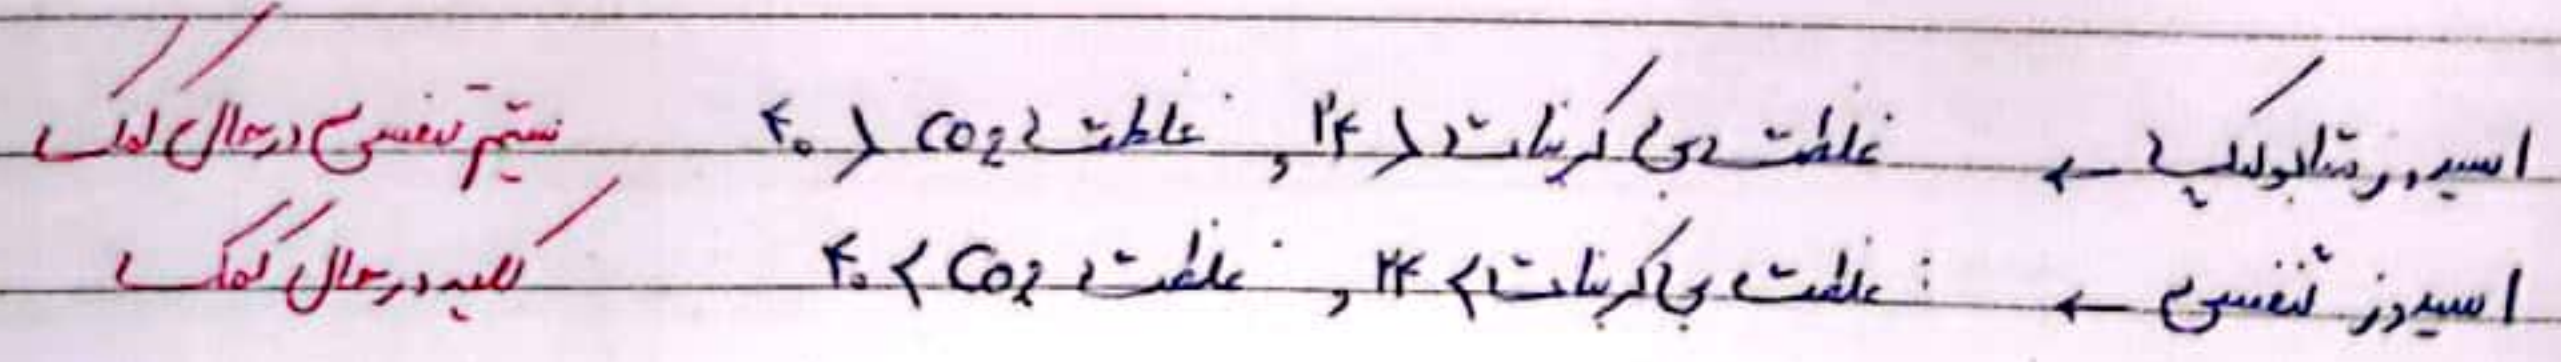 اسیدوز متابولیک ← غلظت بی کربنات < ۲۴ , غلظت CO2 < ۴۰ سیستم تنفسی در حال کمک
اسیدوز تنفسی ← : غلظت بی کربنات > ۲۴ , غلظت CO2 > ۴۰ کلیه در حال کمک